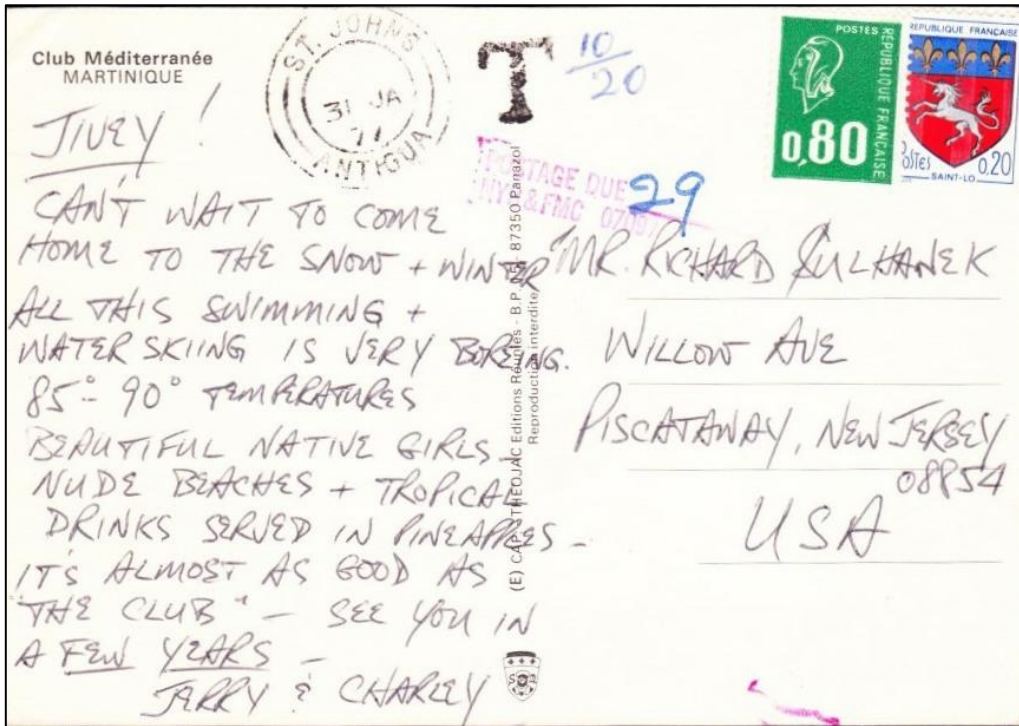 Club Méditerranée
MARTINIQUE
ST. JOHNS
31 JA
77
ANTIGUA
T
10/20
POSTES
RÉPUBLIQUE FRANÇAISE
0,80
RÉPUBLIQUE FRANÇAISE
POSTES 0,20
SAINT-LO
POSTAGE DUE 29
JIVEY!
CAN'T WAIT TO COME
HOME TO THE SNOW + WINTER
ALL THIS SWIMMING +
WATER SKIING IS VERY BOREING.
85°- 90° TEMPERATURES
BEAUTIFUL NATIVE GIRLS -
NUDE BEACHES + TROPICAL
DRINKS SERVED IN PINEAPPLES -
IT'S ALMOST AS GOOD AS
"THE CLUB" - SEE YOU IN
A FEW YEARS -
JERRY & CHARLEY
(E) CAP - THEOJAC Editions Rouples - B.P. 87350 Panazol
Reproduction interdite
MR. RICHARD
WILLOW AVE
PISCATAWAY, NEW JERSEY
08854
USA